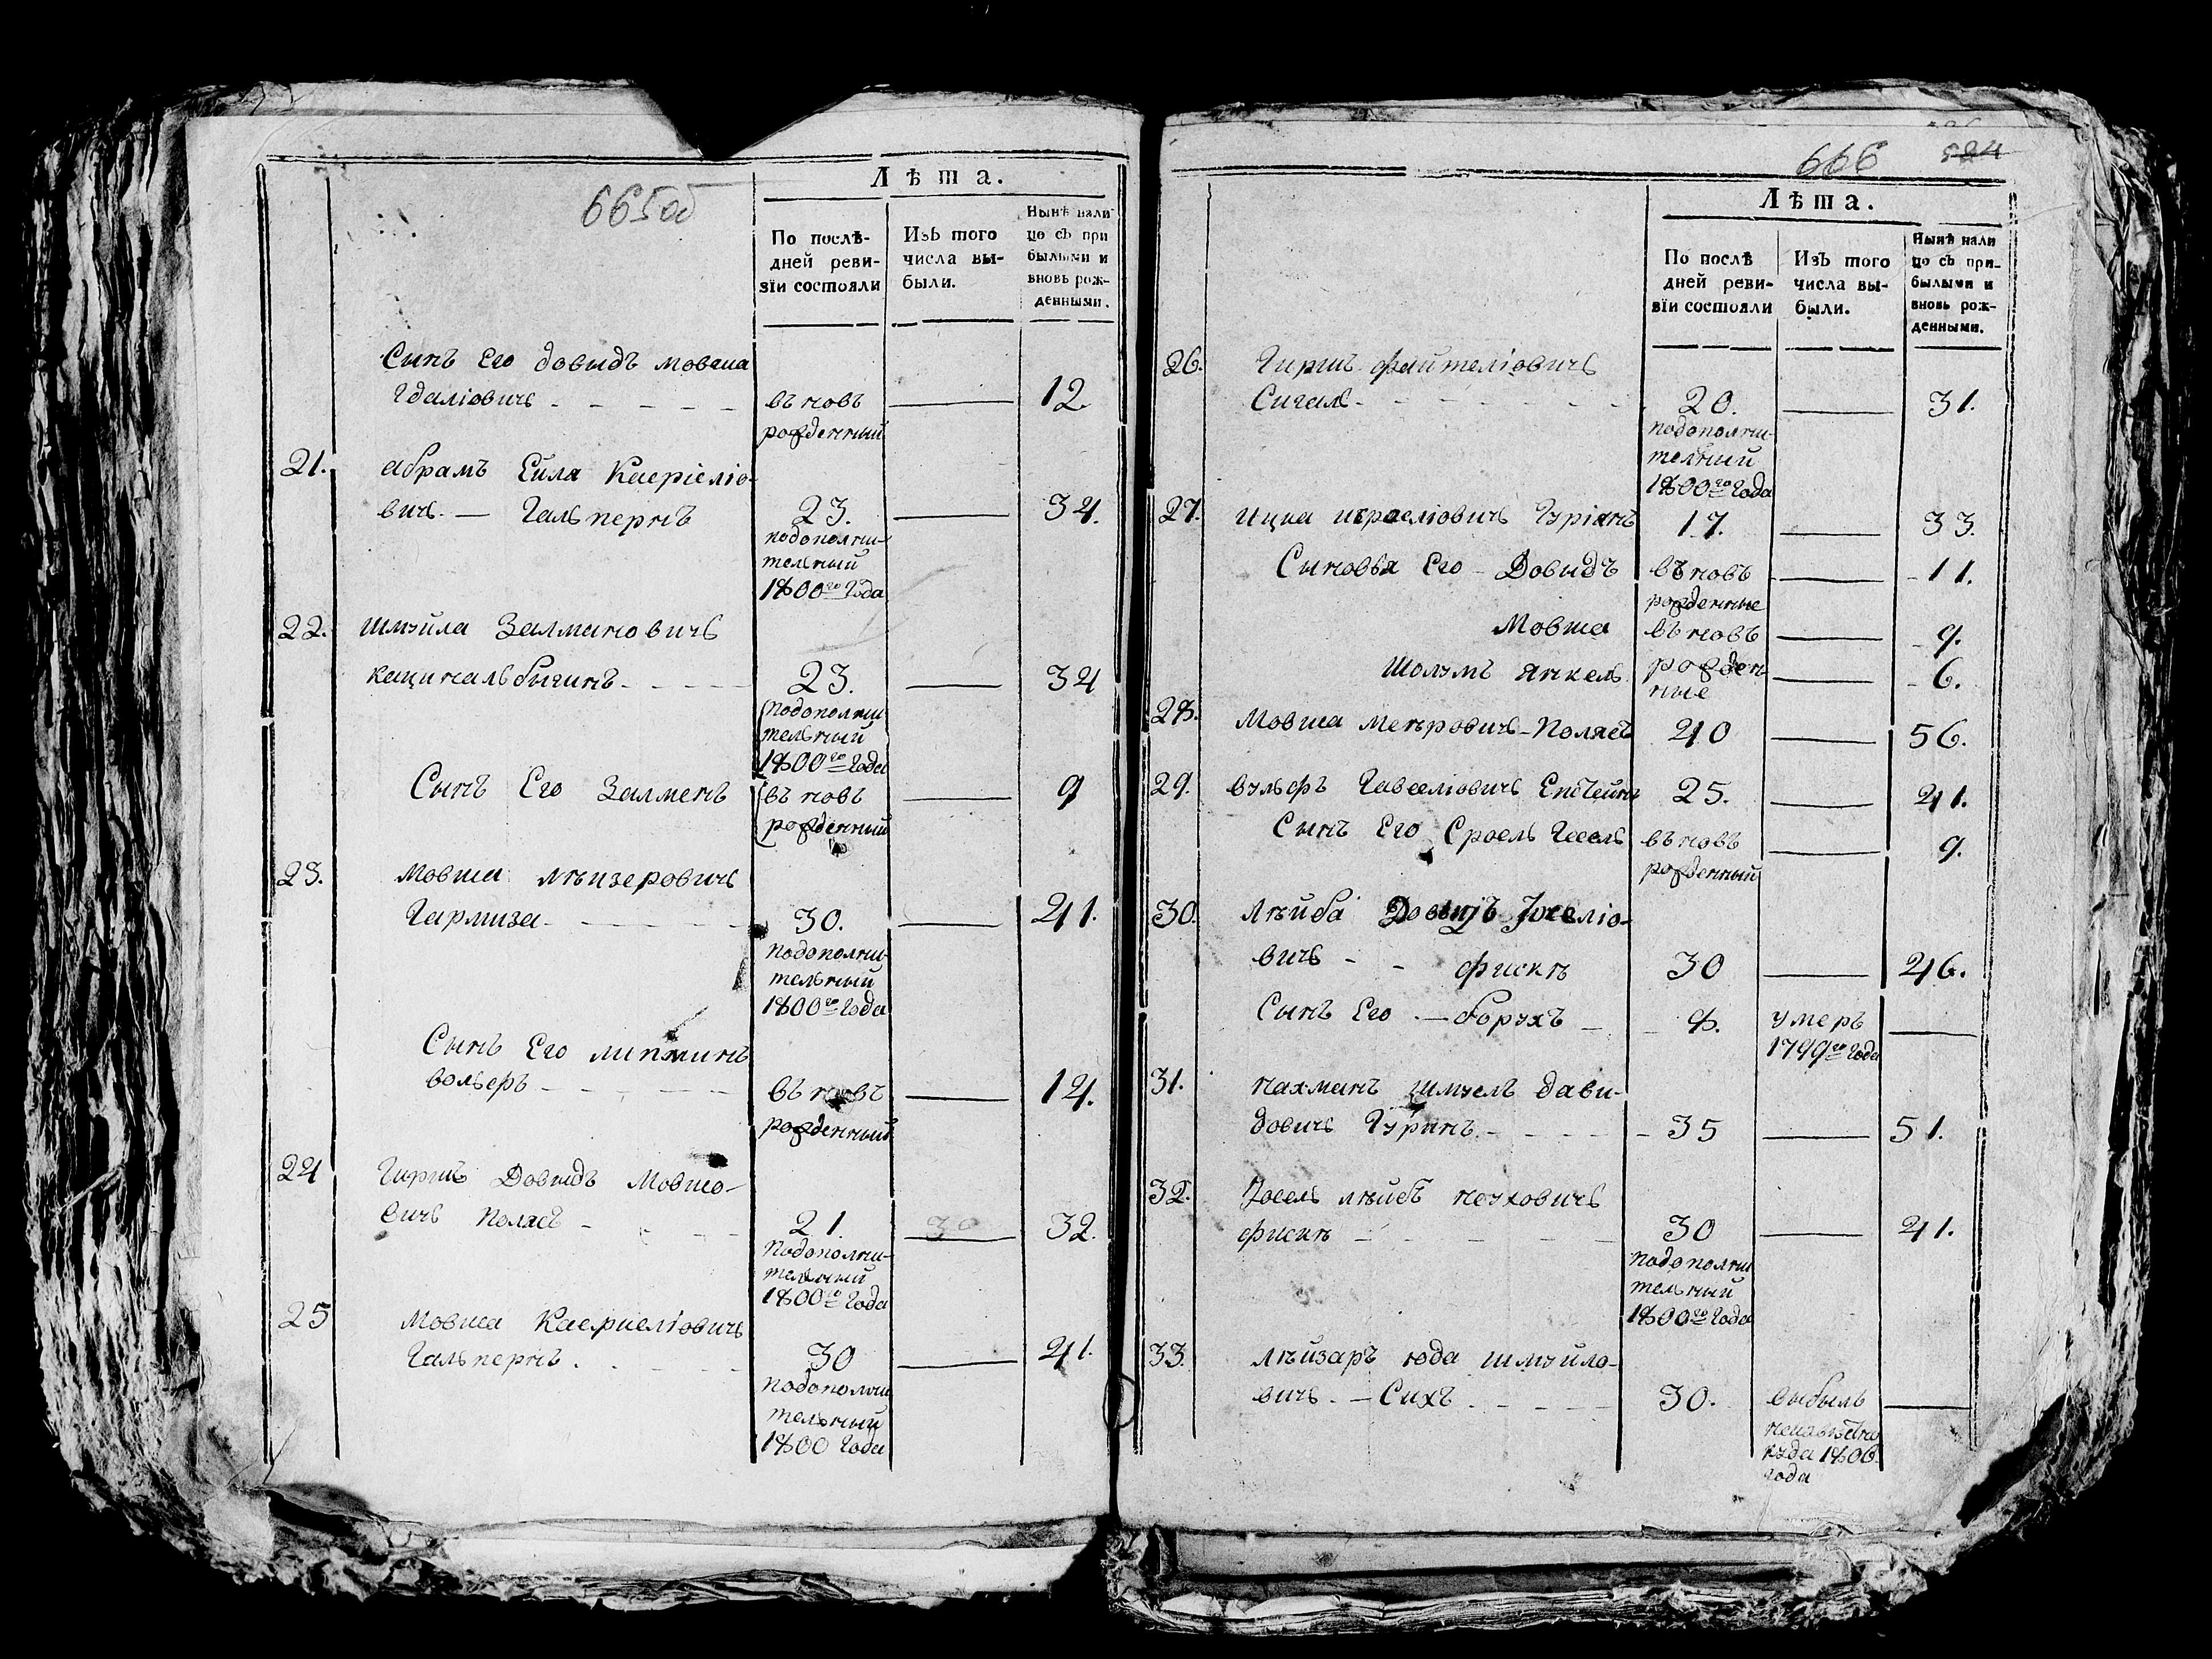 665об
Лѣта.
По послѣ-
дней реви-
зїи состояли
Изъ того
числа вы-
были.
Нынѣ нали
цо съ при
былыми и
вновь рож-
денными.
Сынъ Его довыдъ мовша
Гдаліовичь - - - - - въ новъ — 12.
рожденный
21. абрамъ Еиля Касріеліо-
вичь. — Гальпернъ 23. — 34.
подополни-
тельный
1800го Года
22. шмуйла Залмановичь
каценальбыгинъ - - - - 23. — 34
подополни
тельный
1800го Года
Сынъ Его Залменъ въ новъ — 9
рожденный
23. Мовша лѣизеровичь
Гармиза - - - - - 30. — 41.
подополни-
тельный
1800го Года
Сынъ Его липманъ
вольфъ - - - - - въ новъ — 14.
рожденный
24 Гиршъ Довыдъ Мовшо-
вичь Полякъ - - - - 21. — 32.
подополни-
тельный
1800го Года
25 Мовша Касриеліовичь
Гальпернъ. - - - - 30 — 41.
подополни
тельный
1800 Года
666 524
Лѣта.
По послѣ
дней реви-
зїи состояли
Изъ того
числа вы-
были.
Нынѣ нали
цо съ при-
былыми и
вновь рож-
денными.
26. Гиршъ файтеліовичь
Сигаль - - - - - - 20. — 31.
подополни-
тельный
1800го Года
27. ицка израеліовичь Гуріянъ 17. — 33.
Сыновья Его - Довыдъ въ новъ — 11.
рожденные
Мовша въ новъ — 9.
Шолумъ янкель рожден — 6.
ные
28. Мовша меѣровичь - Полякъ 40 — 56.
29. вульфъ Гавселіовичь Епстейнъ 25. — 41.
Сынъ Его Сроель Іссель въ новъ — 9.
рожденный
30. лѣйба Довыдъ Іоселіо-
вичь - - фискъ 30 — 46.
Сынъ Его. — борухъ - - 8. умеръ —
1799го Года
31. нахманъ шмуель дави-
довичь Гуринъ. - - - - 35 — 51.
32. Іосель лѣйбъ ноуховичь
фискъ - - - - - 30 — 41.
подополни
тельный
1800го Года
33. лѣйзаръ юда шмуйло-
вичь. — Сихъ - - - - 30. выбылъ —
неизвѣстно
куда 1806.
года